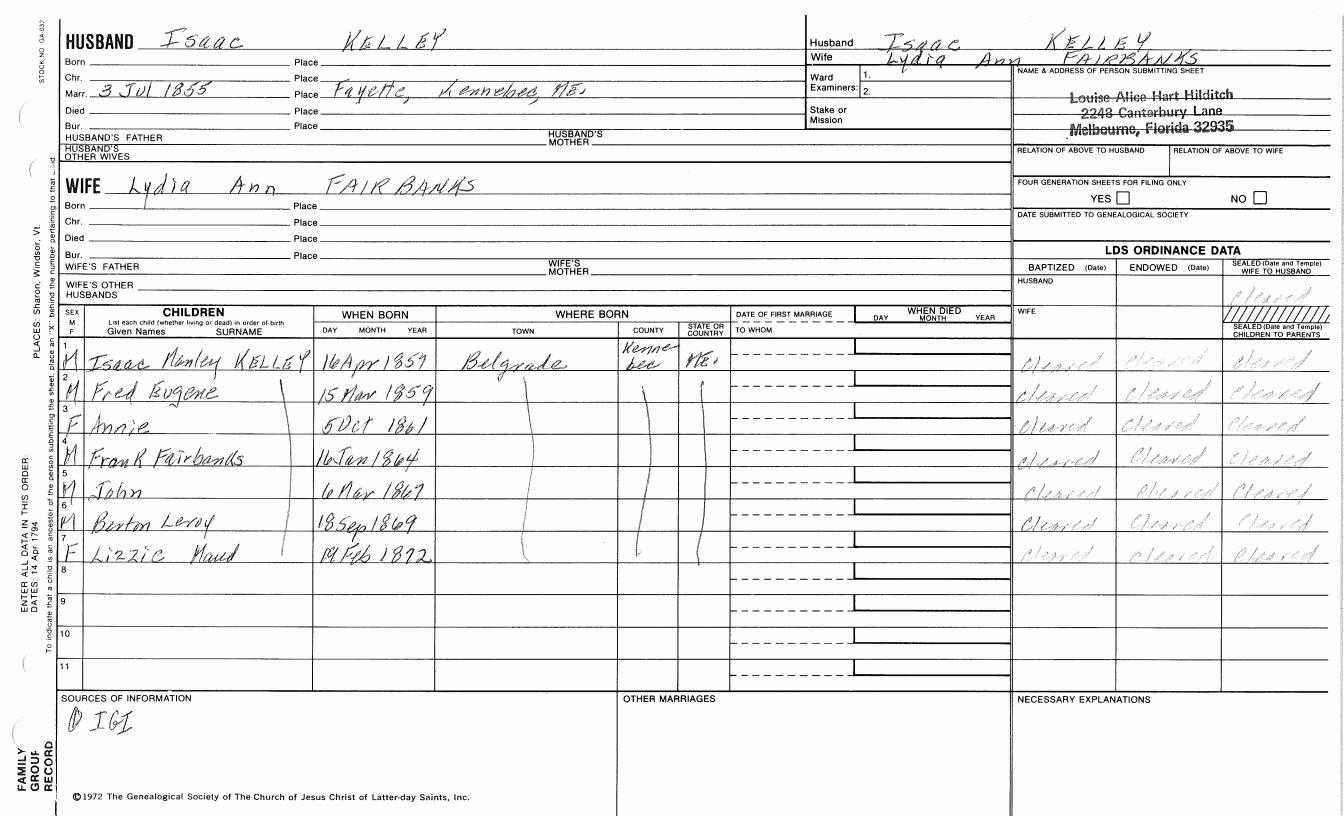 STOCK NO. GA-037
HUSBAND Isaac KELLEY
Born Place
Chr. Place
Marr. 3 Jul 1855 Place Fayette, Kennebec, ME.
Died Place
Bur. Place
HUSBAND'S FATHER HUSBAND'S MOTHER
HUSBAND'S OTHER WIVES
WIFE Lydia Ann FAIRBANKS
Born Place
Chr. Place
Died Place
Bur. Place
WIFE'S FATHER WIFE'S MOTHER
WIFE'S OTHER HUSBANDS
Husband Isaac KELLEY
Wife Lydia Ann FAIRBANKS
Ward Examiners: 1. 2.
Stake or Mission
NAME & ADDRESS OF PERSON SUBMITTING SHEET
Louise Alice Hart Hilditch
2248 Canterbury Lane
Melbourne, Florida 32935
RELATION OF ABOVE TO HUSBAND RELATION OF ABOVE TO WIFE
FOUR GENERATION SHEETS FOR FILING ONLY
YES NO
DATE SUBMITTED TO GENEALOGICAL SOCIETY
LDS ORDINANCE DATA
BAPTIZED (Date) ENDOWED (Date) SEALED (Date and Temple) WIFE TO HUSBAND
HUSBAND Cleared
WIFE SEALED (Date and Temple) CHILDREN TO PARENTS
SEX M F CHILDREN WHEN BORN WHERE BORN DATE OF FIRST MARRIAGE WHEN DIED
List each child (whether living or dead) in order of birth
Given Names SURNAME DAY MONTH YEAR TOWN COUNTY STATE OR COUNTRY TO WHOM DAY MONTH YEAR
1 M Isaac Manley KELLEY 16 Apr 1857 Belgrade Kennebec ME. Cleared Cleared Cleared
2 M Fred Eugene 15 Mar 1859 Cleared Cleared Cleared
3 F Annie 5 Oct 1861 Cleared Cleared Cleared
4 M Frank Fairbanks 16 Jan 1864 Cleared Cleared Cleared
5 M John 6 Mar 1867 Cleared Cleared Cleared
6 M Burton Leroy 18 Sep 1869 Cleared Cleared Cleared
7 F Lizzie Maud 19 Feb 1872 Cleared Cleared Cleared
8
9
10
11
SOURCES OF INFORMATION OTHER MARRIAGES NECESSARY EXPLANATIONS
① IGI
©1972 The Genealogical Society of The Church of Jesus Christ of Latter-day Saints, Inc.
FAMILY GROUP RECORD
ENTER ALL DATA IN THIS ORDER
DATES: 14 Apr 1794
PLACES: Sharon, Windsor, Vt.
To indicate that a child is an ancestor of the person submitting the sheet, place an "X" behind the number pertaining to that